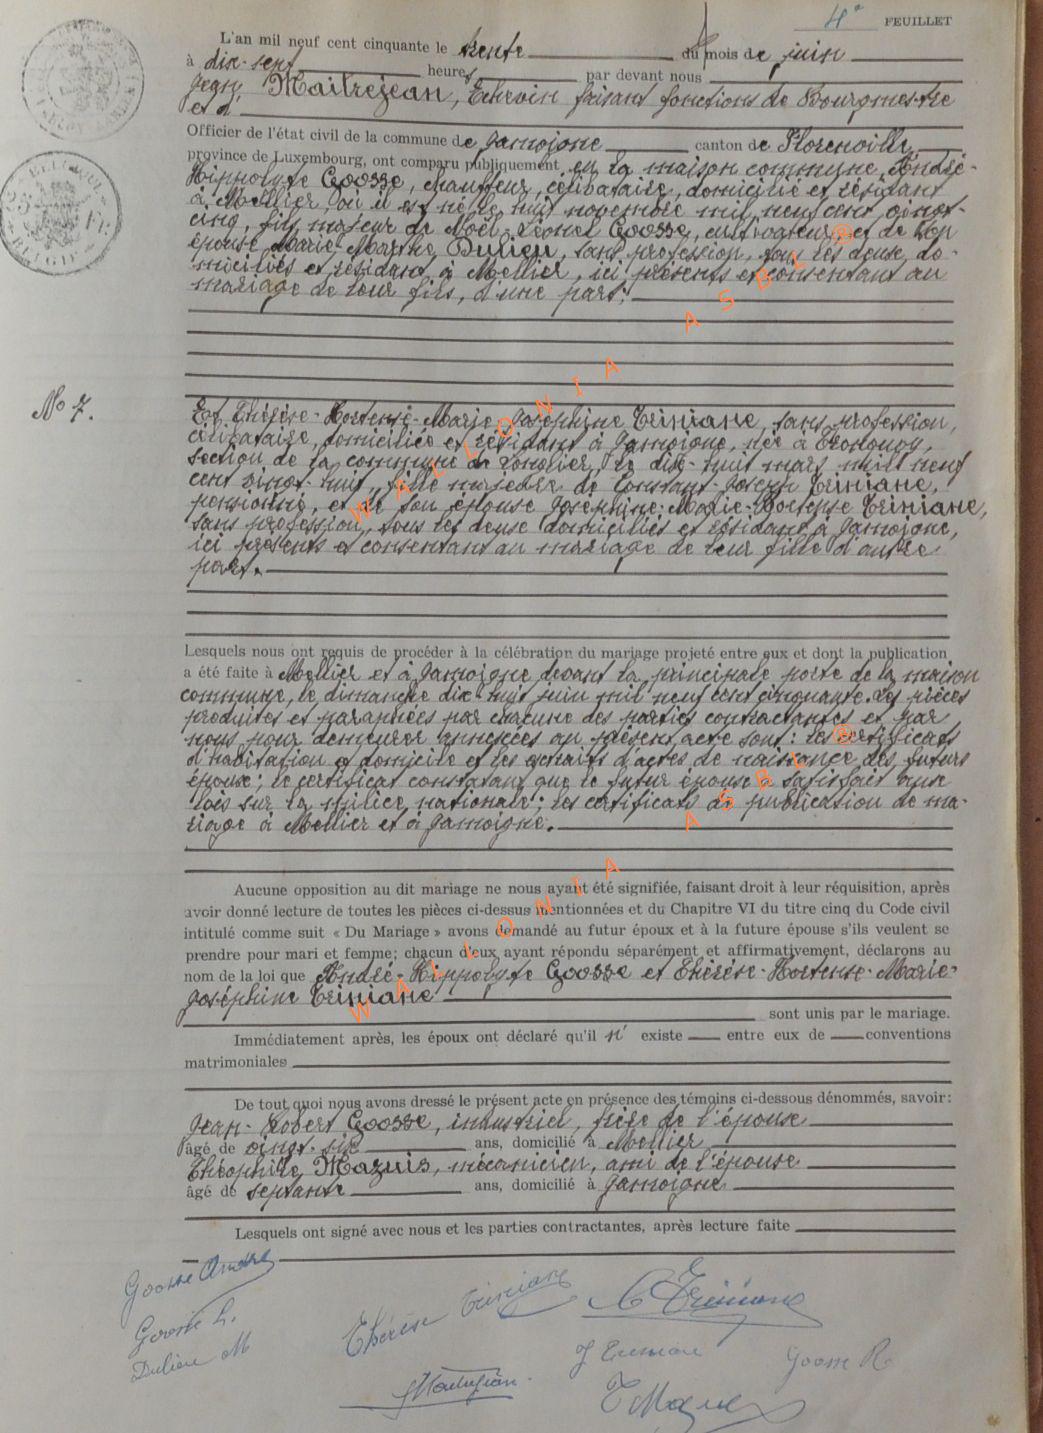 4e FEUILLET
L'an mil neuf cent cinquante le trente du mois de juin
à dix-sept heures par devant nous
Jean Maitrejean, Echevin faisant fonctions de Bourgmestre
et d'
Officier de l'état civil de la commune de Jamoigne canton de Florenville
province de Luxembourg, ont comparu publiquement en la maison commune André-
Hippolyte Goosse, chauffeur, célibataire, domicilié et résidant
à Mellier, où il est né le huit novembre mil neuf cent vingt-
cinq, fils majeur de Noël-Léonel Goosse, cultivateur et de son
épouse Marie-Marthe Dulieu, sans profession, tous les deux do-
miciliés et résidant à Mellier, ici présents et consentant au
mariage de leur fils, d'une part;
No 7.
Et Thérèse-Hortense-Marie-Joséphine Triniane, sans profession,
célibataire, domiciliée et résidant à Jamoigne, née à
section de la commune de le dix-huit mars mil neuf
cent vingt-huit, fille majeure de Constant-Joseph Triniane,
pensionné, et de son épouse Joséphine-Marie-Hortense Triniane,
sans profession, tous les deux domiciliés et résidant à Jamoigne,
ici présents et consentant au mariage de leur fille d'autre
part.
Lesquels nous ont requis de procéder à la célébration du mariage projeté entre eux et dont la publication
a été faite à Mellier et à Jamoigne devant la principale porte de la maison
commune, le dimanche dix-huit juin mil neuf cent cinquante. Les pièces
produites et paraphées par chacune des parties contractantes et par
nous pour demeurer annexées au présent acte sont: les certificats
d'habitation et domicile et les extraits d'actes de naissance des futurs
époux; le certificat constatant que le futur époux a satisfait aux
lois sur la milice nationale; les certificats de publication de ma-
riage à Mellier et à Jamoigne.
Aucune opposition au dit mariage ne nous ayant été signifiée, faisant droit à leur réquisition, après
avoir donné lecture de toutes les pièces ci-dessus mentionnées et du Chapitre VI du titre cinq du Code civil
intitulé comme suit « Du Mariage » avons demandé au futur époux et à la future épouse s'ils veulent se
prendre pour mari et femme; chacun d'eux ayant répondu séparément et affirmativement, déclarons au
nom de la loi que André-Hippolyte Goosse et Thérèse-Hortense-Marie-
Joséphine Triniane
sont unis par le mariage.
Immédiatement après, les époux ont déclaré qu'il n'existe entre eux de conventions
matrimoniales
De tout quoi nous avons dressé le présent acte en présence des témoins ci-dessous dénommés, savoir:
Jean-Robert Goosse, industriel, frère de l'époux
âgé de vingt-six ans, domicilié à Mellier
Théophile Mazuis, mécanicien, ami de l'épouse
âgé de septante ans, domicilié à Jamoigne
Lesquels ont signé avec nous et les parties contractantes, après lecture faite
Goosse André
Goosse L.
Dulieu M
Thérèse Triniane
C Triniane
J Triniane
Goosse R
JMaitrejean
WALLONIA ASBL ®
WALLONIA ASBL ®